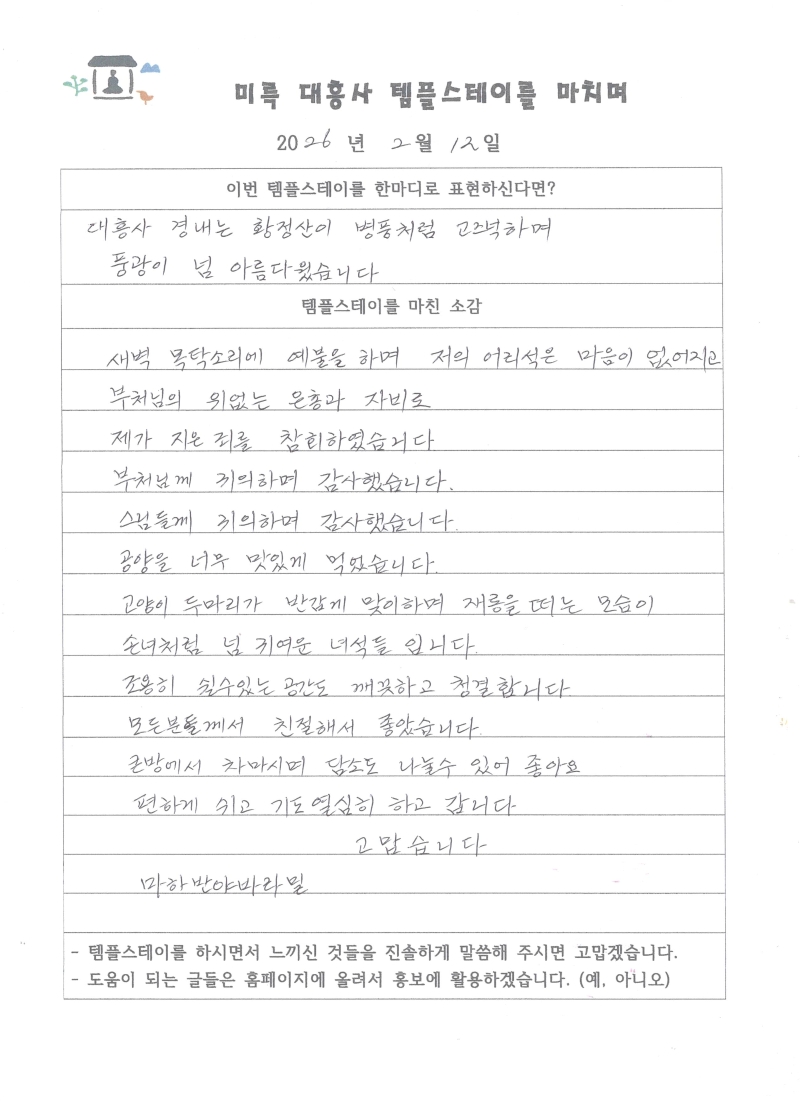 미륵 대흥사 템플스테이를 마치며
2026 년 2월 12일
이번 템플스테이를 한마디로 표현하신다면?
대흥사 경내는 황정산이 병풍처럼 고즈넉하며
풍광이 넘 아름다웠습니다
템플스테이를 마친 소감
새벽 목탁소리에 예불을 하며 저의 어리석은 마음이 없어지고
부처님의 위없는 은총과 자비로
제가 지은 죄를 참회하였습니다
부처님께 귀의하며 감사했습니다.
스님들께 귀의하며 감사했습니다.
공양을 너무 맛있게 먹었습니다.
고양이 두마리가 반갑게 맞이하며 재롱을 떠는 모습이
손녀처럼 넘 귀여운 녀석들 입니다.
조용히 쉴수있는 공간도 깨끗하고 청결합니다
모든분들께서 친절해서 좋았습니다.
큰방에서 차마시며 담소도 나눌수 있어 좋아요
편하게 쉬고 기도 열심히 하고 갑니다
고맙습니다
마하반야바라밀
- 템플스테이를 하시면서 느끼신 것들을 진솔하게 말씀해 주시면 고맙겠습니다.
- 도움이 되는 글들은 홈페이지에 올려서 홍보에 활용하겠습니다. (예, 아니오)